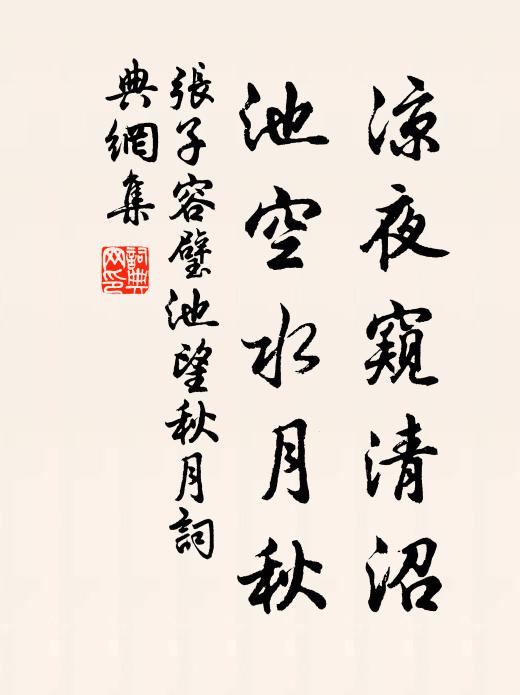 涼夜窺清沼
池空水月秋
張子容璧池望秋月詞
典網集
詞典網印